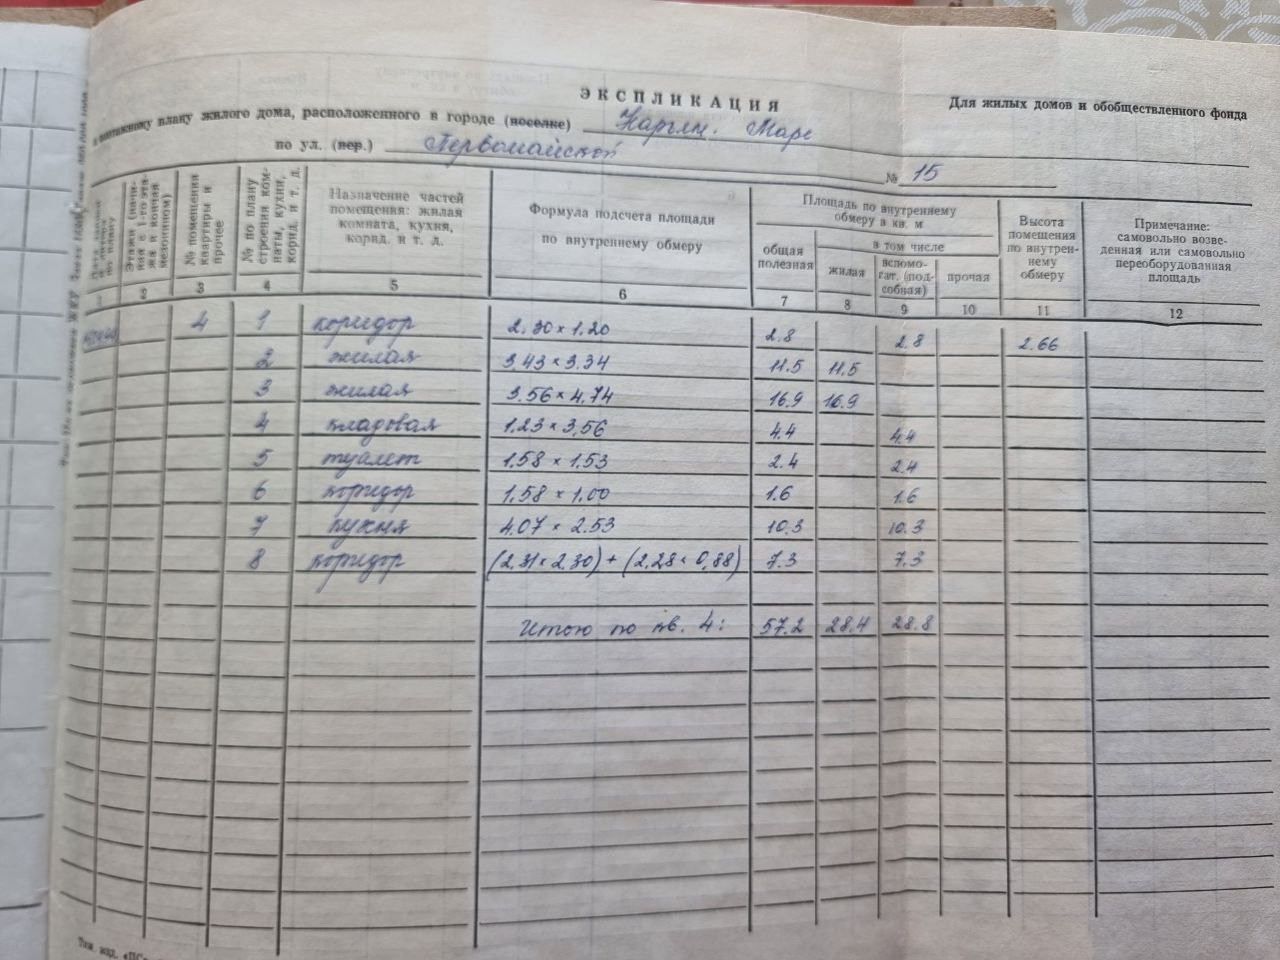 ЭКСПЛИКАЦИЯ
Для жилых домов и обобществленного фонда
к поэтажному плану жилого дома, расположенного в городе (поселке) Нарьян. Маре
по ул. (пер.) Первомайской № 15
Этажи (начиная с 1-го этажа и кончая мезонином)
№ помещения квартиры и прочее
№ по плану строения комнаты, кухни, корид. и т. д.
Назначение частей помещения: жилая комната, кухня, корид. и т. д.
Формула подсчета площади по внутреннему обмеру
Площадь по внутреннему обмеру в кв. м
общая полезная
в том числе
жилая
вспомогат. (подсобная)
прочая
Высота помещения по внутреннему обмеру
Примечание: самовольно возведенная или самовольно переоборудованная площадь
1 2 3 4 5 6 7 8 9 10 11 12
4 1 коридор 2.30×1.20 2.8 2.8 2.66
2 жилая 3.43×3.34 11.5 11.5
3 жилая 3.56×4.74 16.9 16.9
4 кладовая 1.23×3.56 4.4 4.4
5 туалет 1.58×1.53 2.4 2.4
6 коридор 1.58×1.00 1.6 1.6
7 кухня 4.07×2.53 10.3 10.3
8 коридор (2.31×2.30)+(2.28×0.88) 7.3 7.3
Итого по кв. 4: 57.2 28.4 28.8